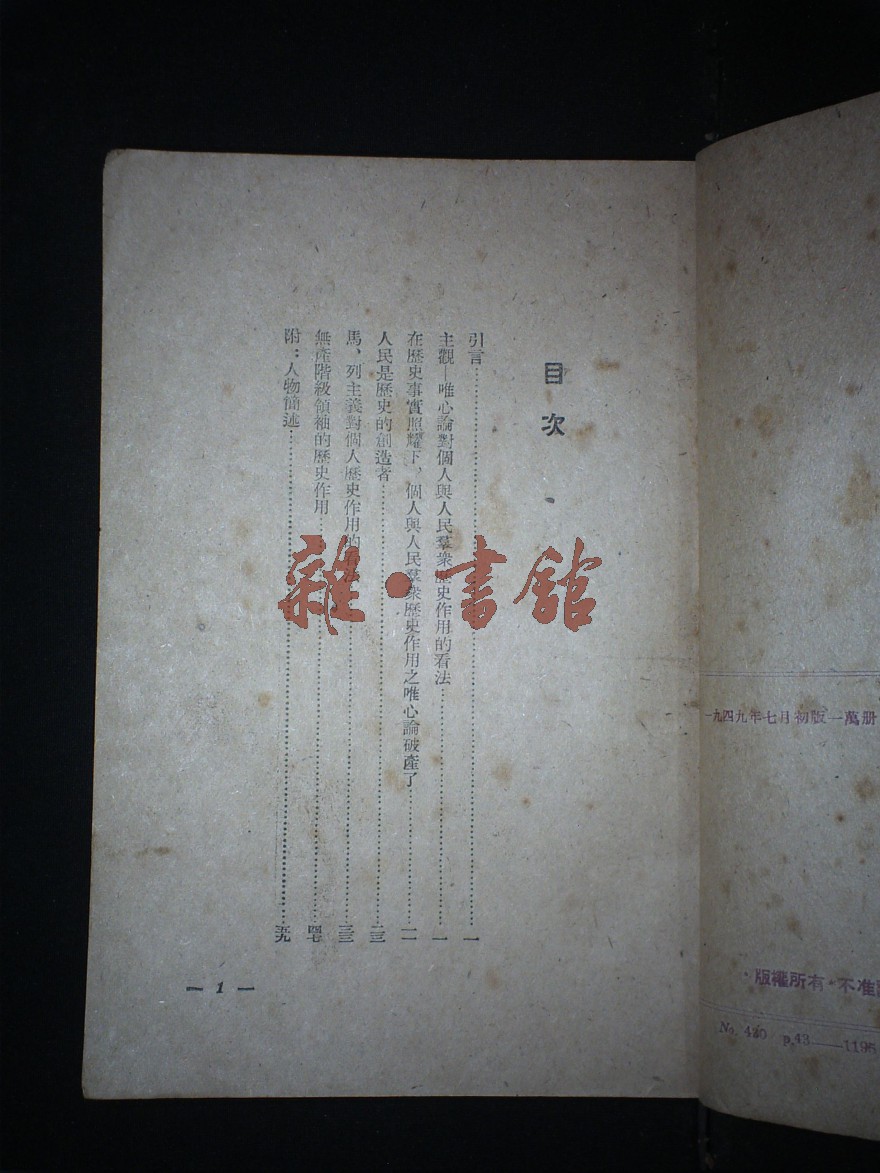 目次
引言……一
主觀—唯心論對個人與人民羣衆歷史作用的看法……一
在歷史事實照耀下，個人與人民羣衆歷史作用之唯心論破產了……一一
人民是歷史的創造者……二三
馬、列主義對個人歷史作用的看法……三三
無產階級領袖的歷史作用……四七
附：人物簡述……五九
— 1 —
雜·書館
一九四九年七月初版一萬册
版權所有·不准
No. 430 p.43——1195